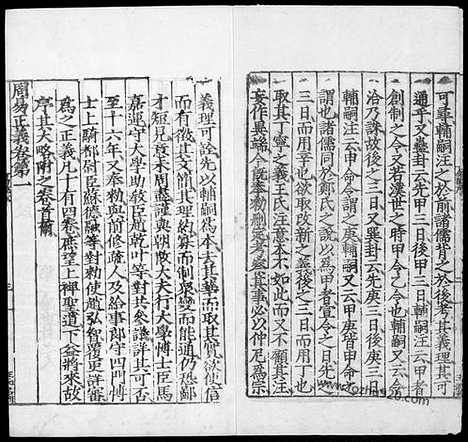 可尋輔嗣注之於前諸儒背之於後考其義理其可
通乎又蠱卦云先甲三日後甲三日輔嗣注云甲者
創制之令又若漢世之時甲令乙令也輔嗣又云令
洽乃誅故後之三日又巽卦云先庚三日後庚三日
輔嗣注云申命令謂之庚輔嗣又云甲庚皆申命之
謂也諸儒同於鄭氏之說以為甲者宣令之日先之
三日而用辛也欲取改新之義後之三日而用丁也
取其丁寧之義王氏注意本不如此而又不顧其注
妄作異端今既奉勑刪定考案其事必以仲尼為宗
義理可詮先以輔嗣為本去其華而取其實欲使信
而有徵其文簡其理約寡而制衆變而能通仍恐鄙
才短見意未周盡謹與朝散大夫行大學博士臣馬
嘉運守大學助教臣趙乾叶等對共參議詳其可否
至十六年又奉勑與前修疏人及給事郎守四門博
士上騎都尉臣蘇德融等對勑使趙弘智覆更詳審
為之正義凡十有四卷庶望上裨聖道下益將來故
序其大略附之卷首爾
周易正義卷第一